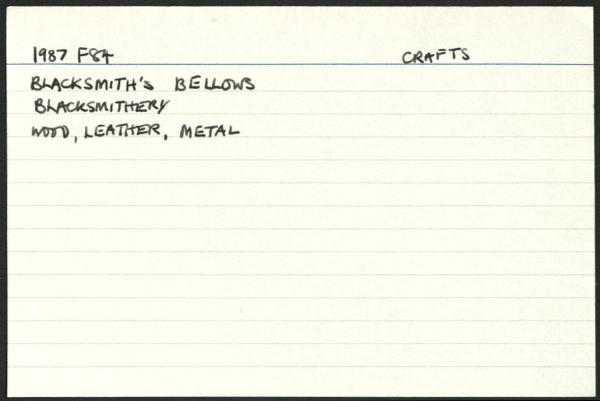 1987 F84 CRAFTS
BLACKSMITH's BELLOWS
BLACKSMITHERY
WOOD, LEATHER, METAL